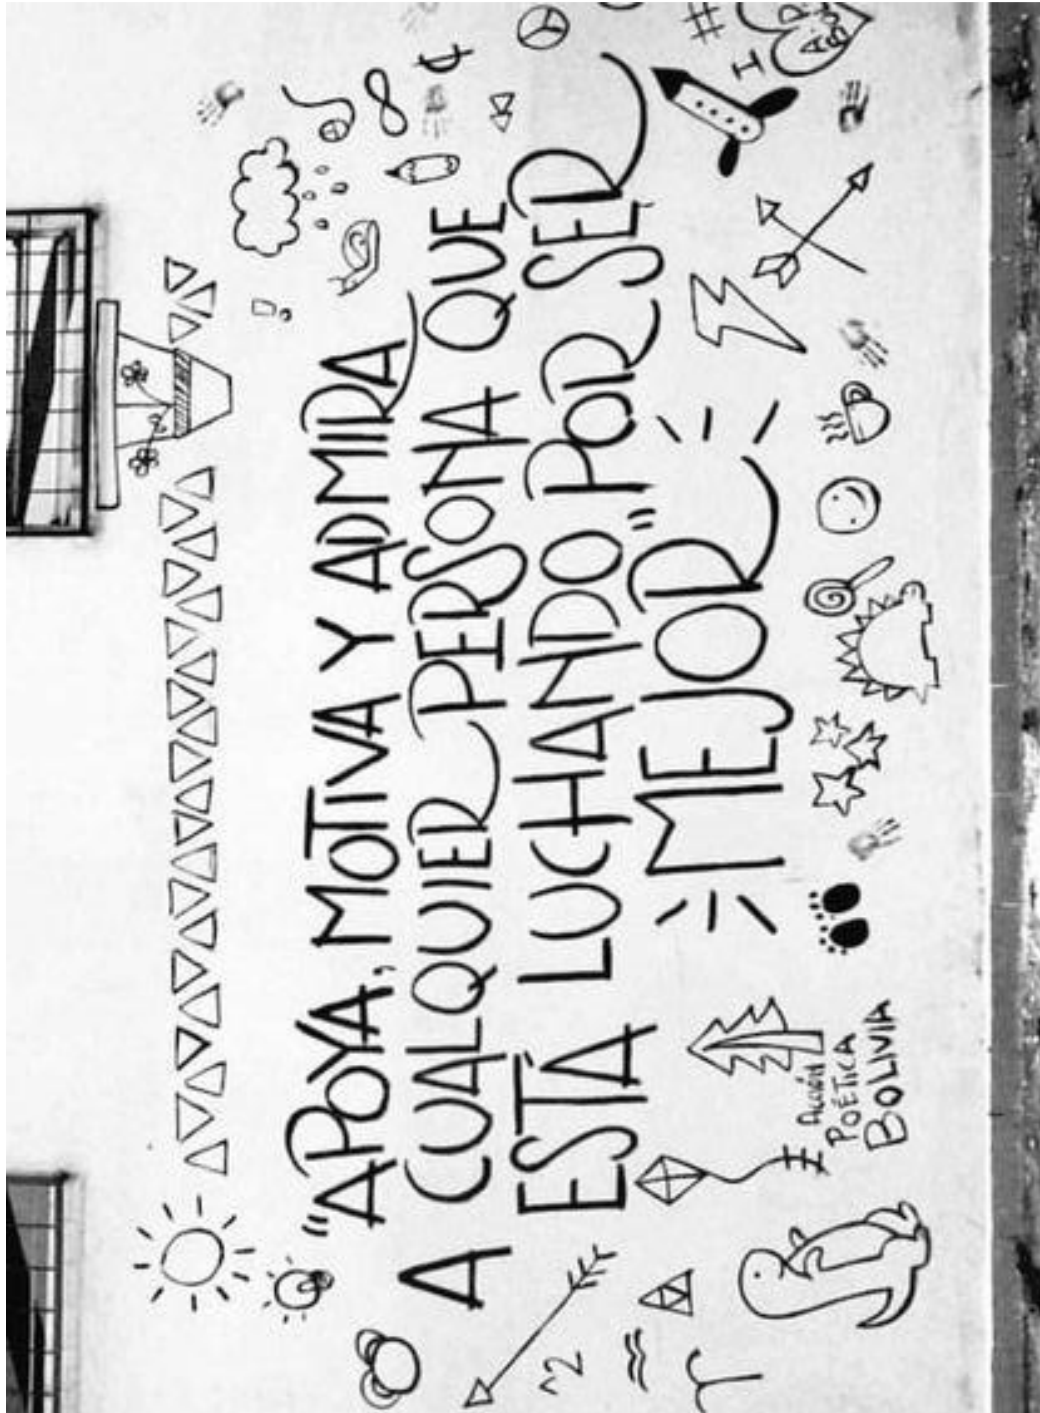 "APOYA, MOTIVA Y ADMIRA
A CUALQUIER PERSONA QUE
ESTÁ LUCHANDO POR SER
"MEJOR"
# ACCIÓN
POÉTICA
BOLIVIA
^2
#
I
A.P